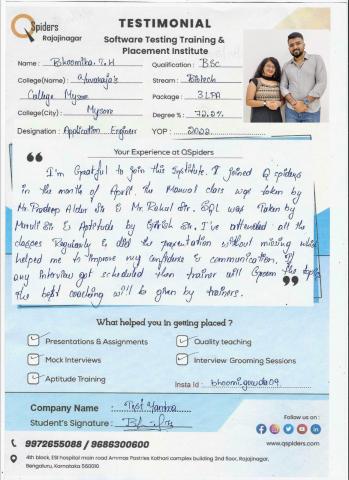 QSpiders
Rajajinagar
TESTIMONIAL
Software Testing Training &
Placement Institute
Name : Bhoomika. T. H
Qualification : BSc
College(Name) : Yuvaraja's
Stream : Biotech
College Mysore
Package : 3 LPA
College(City) : Mysore
Degree % : 72.2%
Designation : Application Engineer
YOP : 2022
Your Experience at QSpiders
I'm Greatful to join this Institute. I joined Q spiders
in the month of April. the Manual class was taken by
Mr. Pradeep Sir & Mr. Rahul Sir. SQL was Taken by
Sir & Aptitude by Girish Sir. I've attended all the
classes Regularly & did the presentation without missing which
helped me to Improve my confidence & communication. If
any Interview got scheduled then trainer will Groom the
the best coaching will be given by trainers.
What helped you in getting placed ?
Presentations & Assignments
Quality teaching
Mock Interviews
Interview Grooming Sessions
Aptitude Training
Insta Id : bhoomigowda09
Company Name :
Student's Signature :
Follow us on :
9972655088 / 9686300600
www.qspiders.com
4th block, ESI hospital main road Ammas Pastries Kathari complex building 2nd floor, Rajajinagar,
Bengaluru, Karnataka 560010